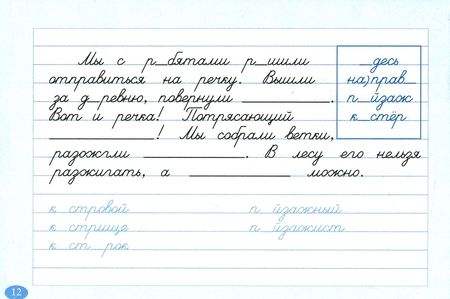 Мы с р_бятами р_шили
отправиться на речку. Вышли
за д_ревню, повернули __________.
Вот и речка! Потрясающий
__________! Мы собрали ветки,
разожгли __________. В лесу его нельзя
разжигать, а __________ можно.
_десь
на)прав_
п_йзаж
к_стёр
к_стровой
к_стрище
к_ст_рок
п_йзажный
п_йзажист
12